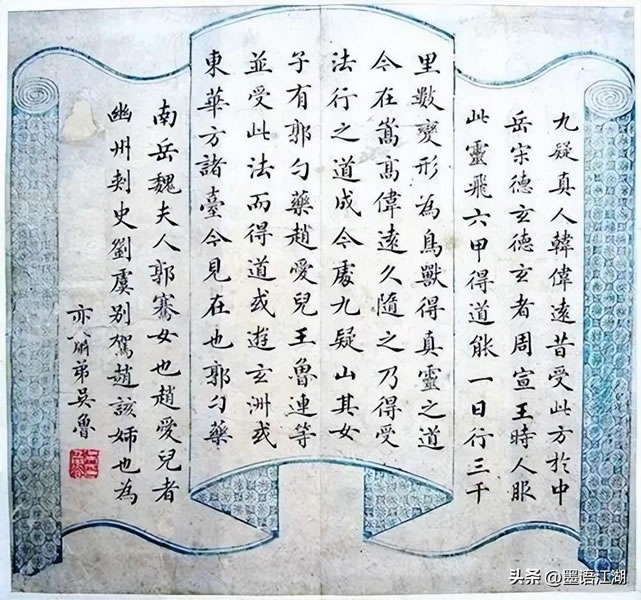 九疑真人韓偉遠昔受此方於中
岳宋德玄德玄者周宣王時人服
此靈飛六甲得道能一日行三千
里數變形為鳥獸得真靈之道
今在嵩高偉遠久隨之乃得受
法行之道成今處九疑山其女
子有郭勺藥趙愛兒王魯連等
並受此法而得道或遊玄洲或
東華方諸臺今見在也郭勺藥
南岳魏夫人郭騫女也趙愛兒者
幽州刺史劉虞别駕趙該姊也為
弟吳魯
头条 @墨语江湖